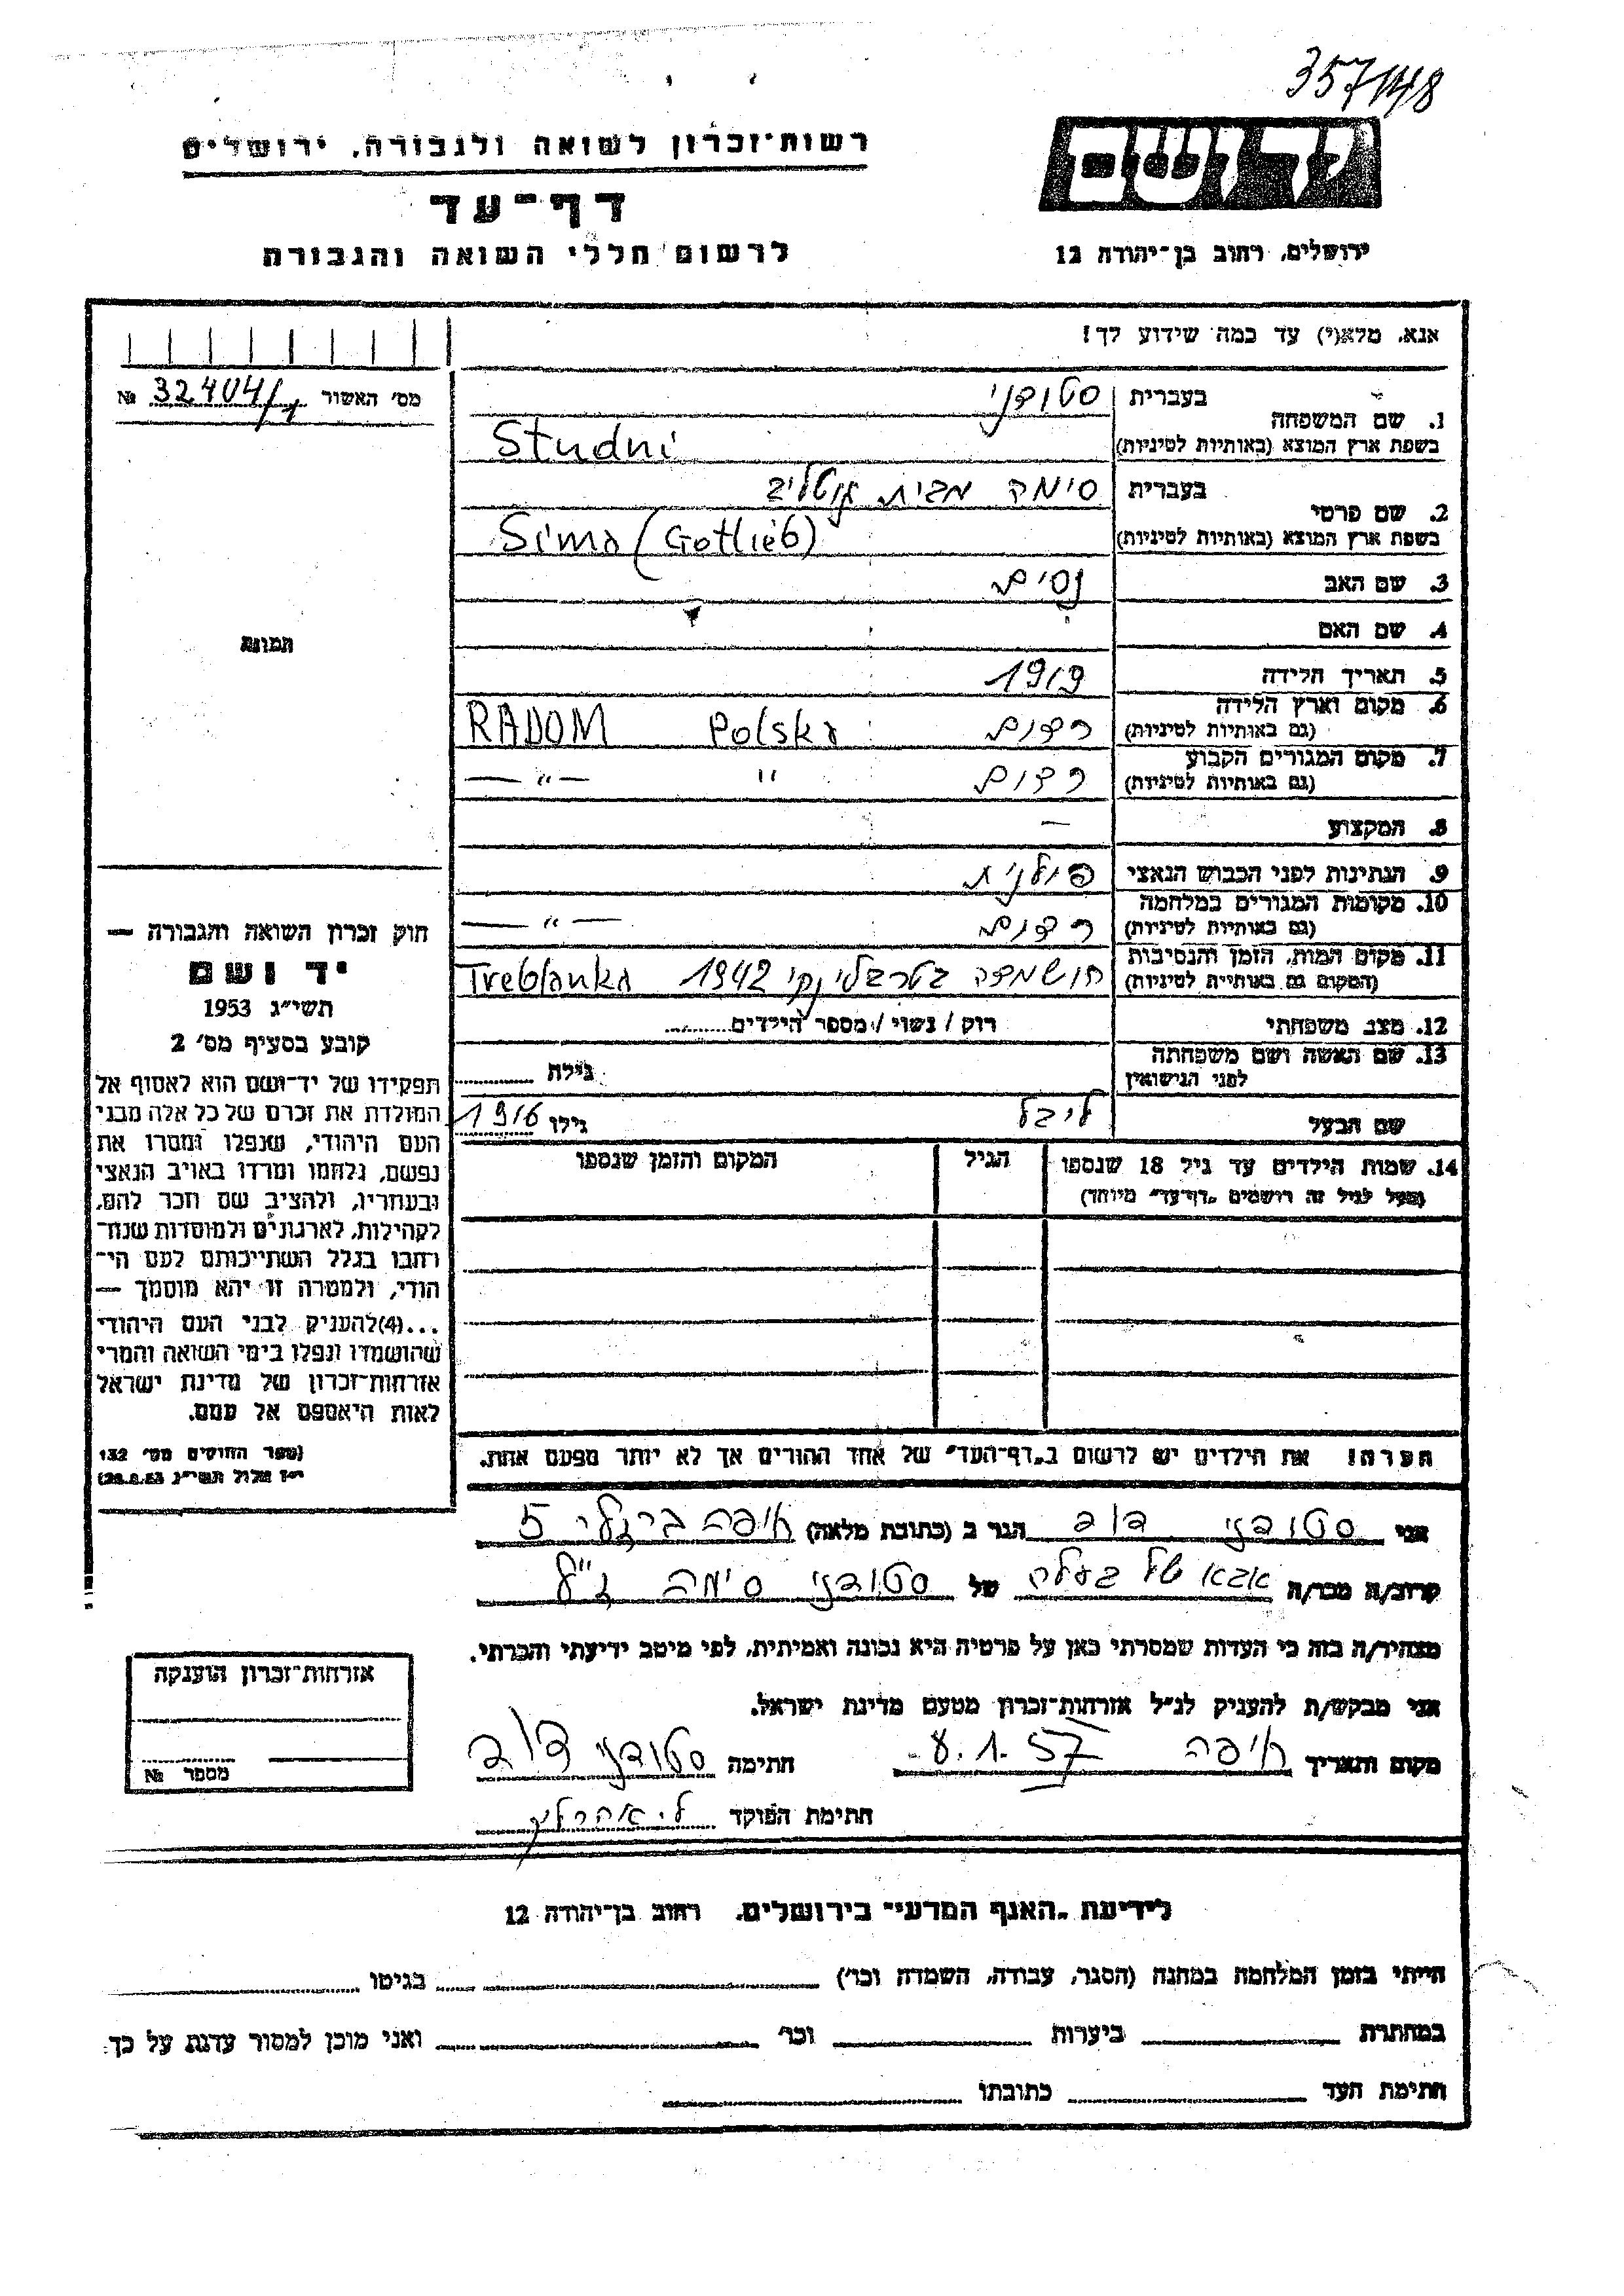 357/148
יד ושם
רשות-זכרון לשואה ולגבורה, ירושלים
דף-עד
לרשום חללי השואה והגבורה
ירושלים, רחוב בן-יהודה 12
אנא, מלא(י) עד כמה שידוע לך!
מס' האשור 32404/1 №
1. שם המשפחה
בעברית סטודני
בשפת ארץ המוצא (באותיות לטיניות) Studni
2. שם פרטי
בעברית סימה מבית גוטליב
בשפת ארץ המוצא (באותיות לטיניות) Sima (Gotlieb)
3. שם האב נסים
4. שם האם
5. תאריך הלידה 1919
6. מקום וארץ הלידה (גם באותיות לטיניות) רדום Polska RADOM
7. מקום המגורים הקבוע (גם באותיות לטיניות) רדום " — " —
8. המקצוע —
9. הנתינות לפני הכבוש הנאצי פולנית
10. מקומות המגורים במלחמה (גם באותיות לטיניות) רדום — " —
11. מקום המות, הזמן והנסיבות (המקום גם באותיות לטיניות) הושמדה בטרבלינקי 1942 Treblanka
12. מצב משפחתי רוק / נשוי / מספר הילדים
13. שם האשה ושם משפחתה לפני הנישואין גילה
שם הבעל לייבל גילו 1916
14. שמות הילדים עד גיל 18 שנספו
(מעל לגיל זה רושמים "דף-עד" מיוחד)
הגיל
המקום והזמן שנספו
תמונה
חוק זכרון השואה והגבורה —
יד ושם
תשי"ג 1953
קובע בסעיף מס' 2
תפקידו של יד-ושם הוא לאסוף אל
המולדת את זכרם של כל אלה מבני
העם היהודי, שנפלו ומסרו את
נפשם, נלחמו ומרדו באויב הנאצי
ובעוזריו, ולהציב שם וזכר להם,
לקהילות, לארגונים ולמוסדות שנח-
רבו בגלל השתייכותם לעם הי-
הודי, ולמטרה זו יהא מוסמך —
...(4) להעניק לבני העם היהודי
שהושמדו ונפלו בימי השואה והמרי
אזרחות-זכרון של מדינת ישראל
לאות היאספם אל עמם.
(ספר החוקים מס' 132
י"ז אלול תשי"ג 28.8.53)
הערה! את הילדים יש לרשום ב"דף-העד" של אחד ההורים אך לא יותר מפעם אחת.
אני סטודני דוב הגר ב (כתובת מלאה) חיפה ברנר 5
קרוב/ה מכר/ה אבא של בעלה של סטודני סימה ז"ל
מצהיר/ה בזה כי העדות שמסרתי כאן על פרטיה היא נכונה ואמיתית, לפי מיטב ידיעתי והכרתי.
אני מבקש/ת להעניק לנ"ל אזרחות-זכרון מטעם מדינת ישראל.
מקום ותאריך חיפה 8.1.57 חתימה סטודני דוב
חתימת הפוקד
אזרחות-זכרון הוענקה
מספר №
לידיעת "האגף המדעי" בירושלים, רחוב בן-יהודה 12
הייתי בזמן המלחמה במחנה (הסגר, עבודה, השמדה וכו') בגיטו
במחתרת ביערות וכו' ואני מוכן למסור עדות על כך.
חתימת העד כתובתו